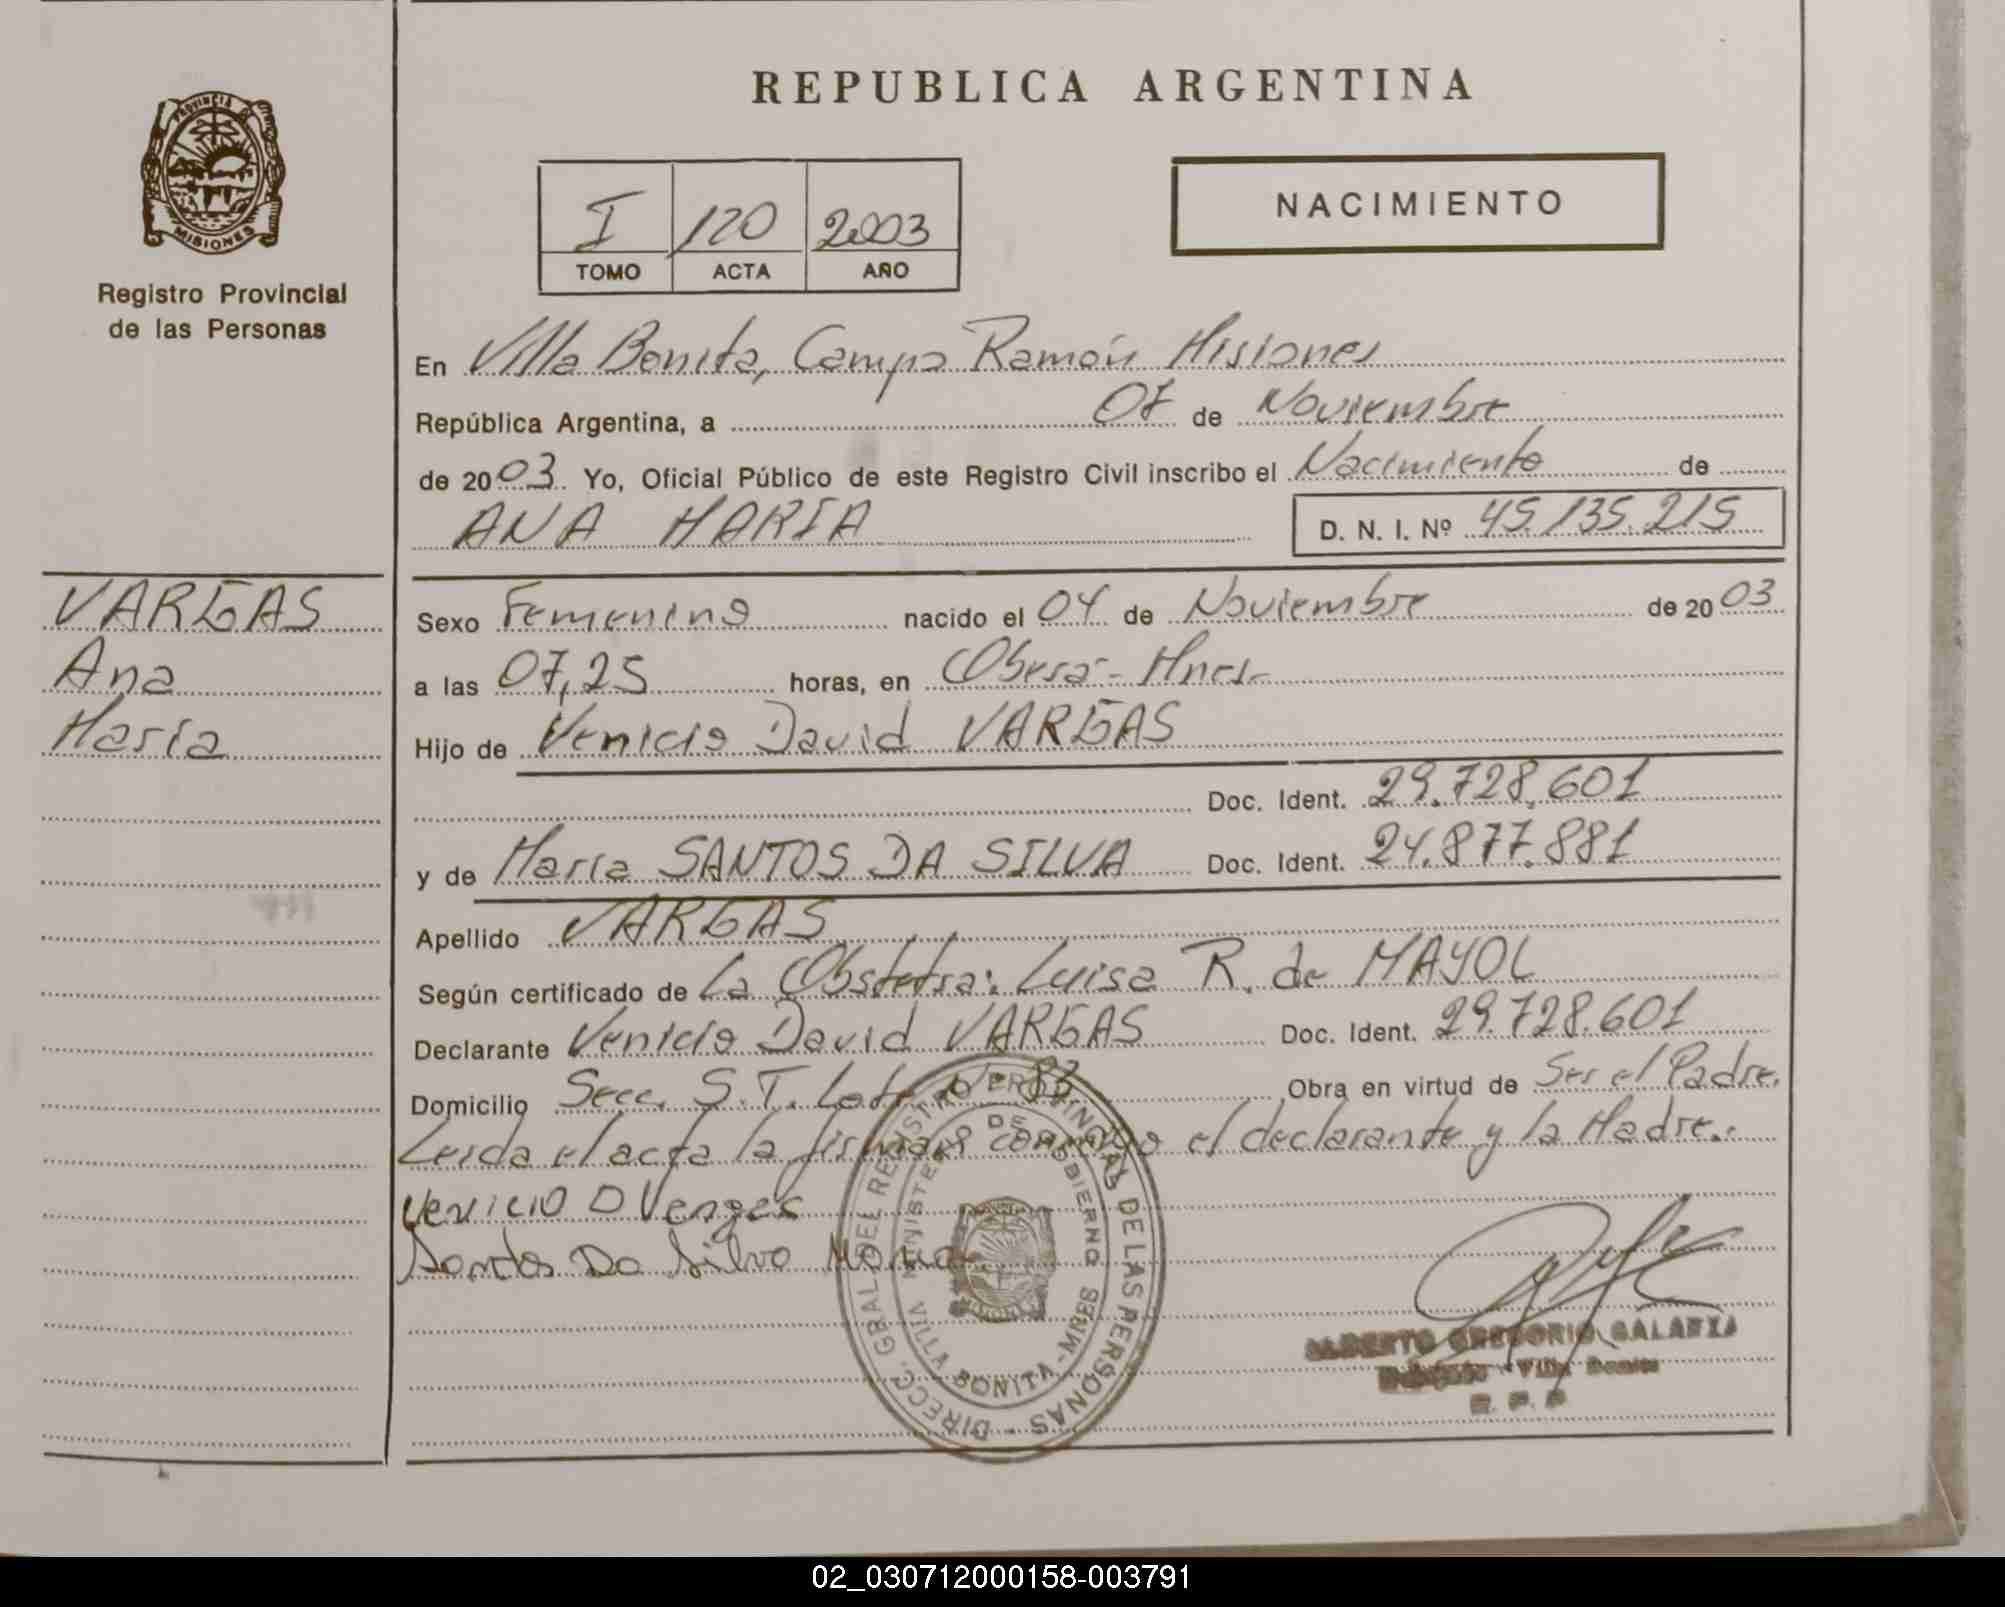 REPUBLICA ARGENTINA
PROVINCIA
MISIONES
Registro Provincial
de las Personas
I 120 2003
TOMO ACTA AÑO
NACIMIENTO
En Villa Bonita, Campo Ramón Misiones
República Argentina, a 07 de Noviembre
de 2003 Yo, Oficial Público de este Registro Civil inscribo el Nacimiento de
ANA MARIA D. N. I. Nº 45.135.215
VARGAS
Ana
María
Sexo Femenino nacido el 04 de Noviembre de 2003
a las 07,25 horas, en Oberá - Mnes.
Hijo de Venicio David VARGAS
Doc. Ident. 29.728.601
y de María SANTOS DA SILVA Doc. Ident. 24.877.881
Apellido VARGAS
Según certificado de La Obstetra: Luisa R. de MAYOL
Declarante Venicio David VARGAS Doc. Ident. 29.728.601
Domicilio Secc. S.T. Lote Nº 83 Obra en virtud de Ser el Padre.
Leída el acta la firman conmigo el declarante y la Madre.
Venicio D Vargas
Santos Da Silva Maria
DIRECC. GRAL DEL REGISTRO PROVINCIAL DE LAS PERSONAS
MINISTERIO DE GOBIERNO
VILLA BONITA - MNES
ALBERTO GREGORIO GALARZA
Delegado Villa Bonita
R. P. P
02_030712000158-003791